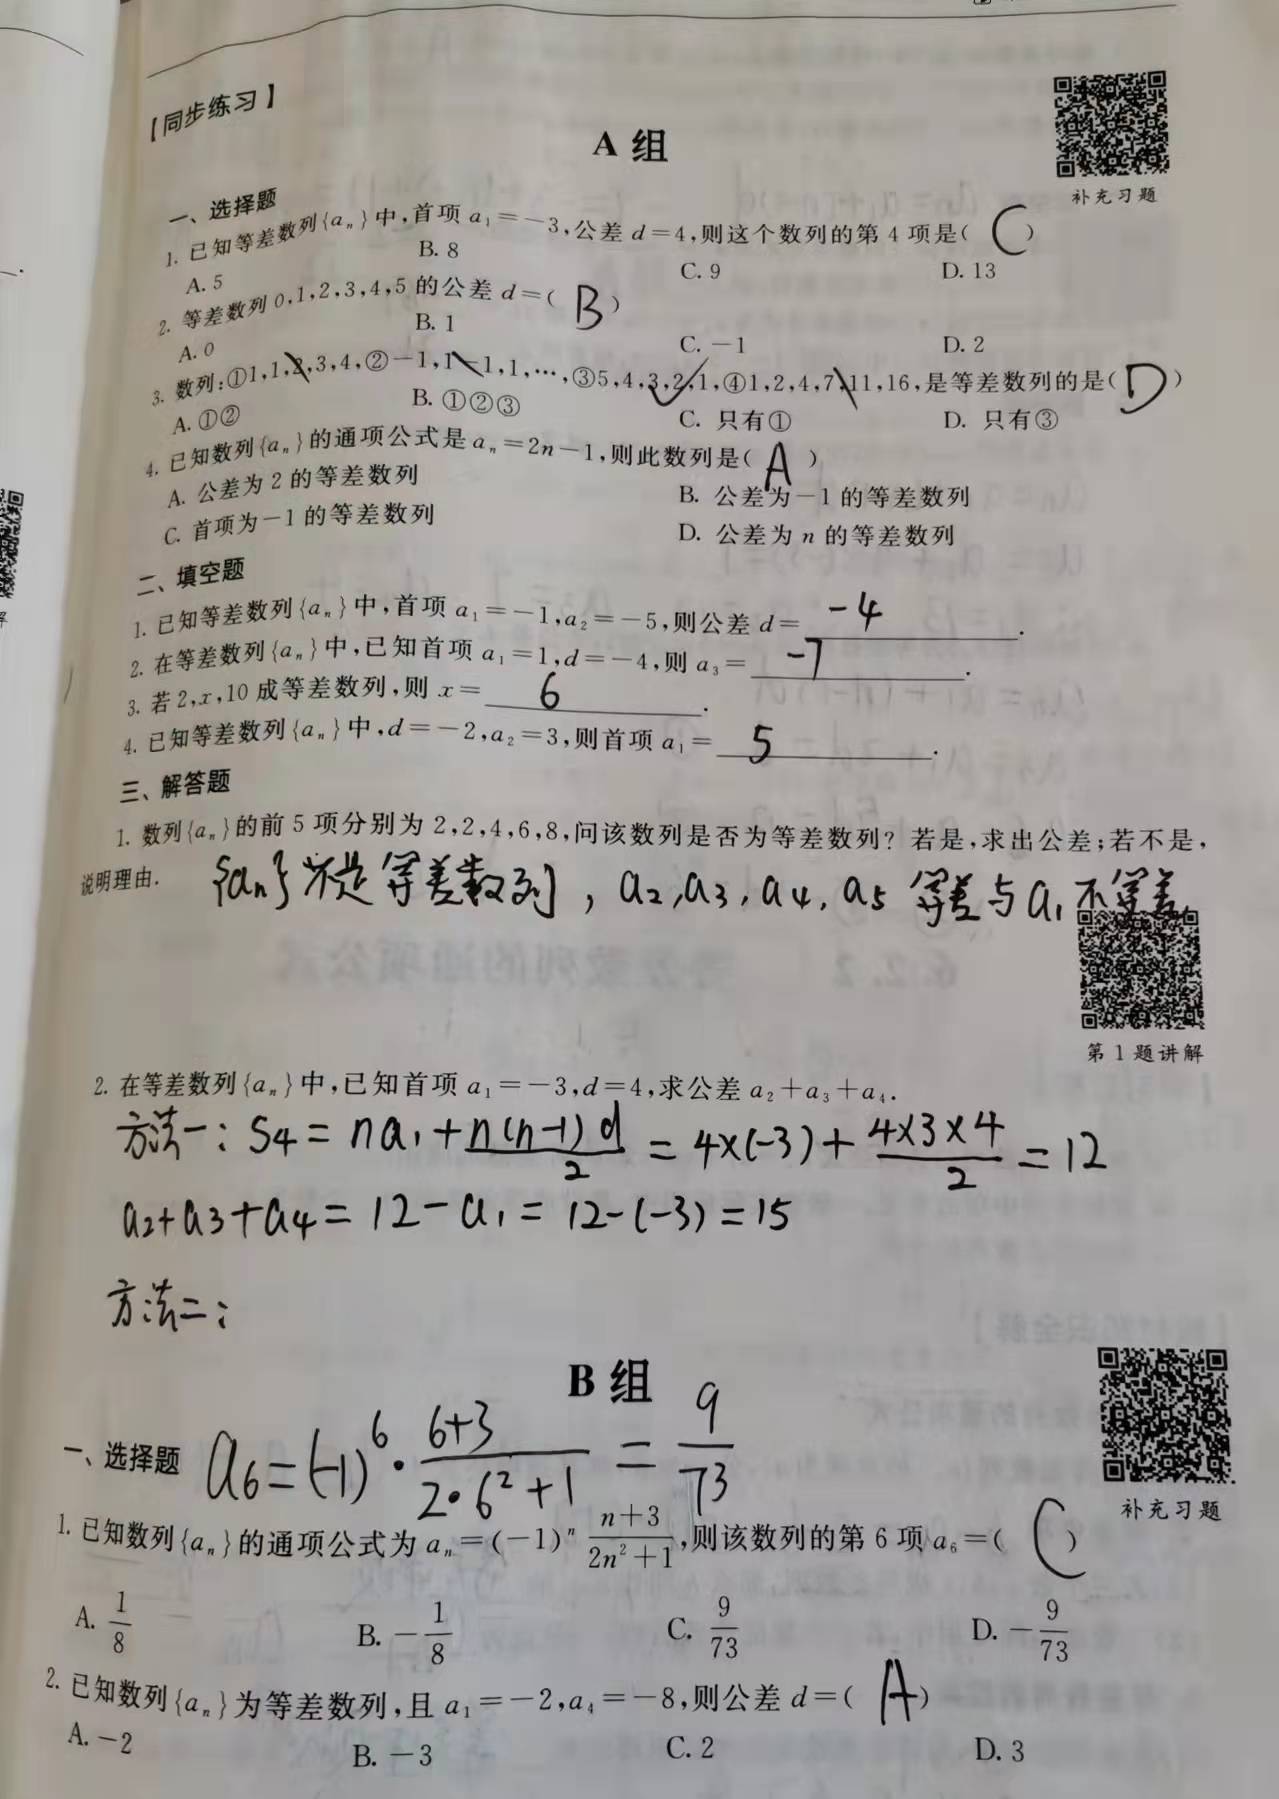 【同步练习】
A 组
补充习题
一、选择题
1. 已知等差数列{aₙ}中,首项 a₁=-3,公差 d=4,则这个数列的第 4 项是( C )
A. 5 B. 8 C. 9 D. 13
2. 等差数列 0,1,2,3,4,5 的公差 d=( B )
A. 0 B. 1 C. -1 D. 2
3. 数列:①1,1,2,3,4,②-1,1,-1,1,…,③5,4,3,2,1,④1,2,4,7,11,16,是等差数列的是( D )
A. ①② B. ①②③ C. 只有① D. 只有③
4. 已知数列{aₙ}的通项公式是 aₙ=2n-1,则此数列是( A )
A. 公差为 2 的等差数列 B. 公差为-1 的等差数列
C. 首项为-1 的等差数列 D. 公差为 n 的等差数列
二、填空题
1. 已知等差数列{aₙ}中,首项 a₁=-1,a₂=-5,则公差 d= -4 .
2. 在等差数列{aₙ}中,已知首项 a₁=1,d=-4,则 a₃= -7 .
3. 若 2,x,10 成等差数列,则 x= 6 .
4. 已知等差数列{aₙ}中,d=-2,a₂=3,则首项 a₁= 5 .
三、解答题
1. 数列{aₙ}的前 5 项分别为 2,2,4,6,8,问该数列是否为等差数列? 若是,求出公差;若不是,
说明理由.
{aₙ}不是等差数列, a₂,a₃,a₄,a₅ 等差与a₁不等差
第 1 题讲解
2. 在等差数列{aₙ}中,已知首项 a₁=-3,d=4,求公差 a₂+a₃+a₄.
方法一: S₄ = na₁ + n(n-1)d/2 = 4×(-3) + 4×3×4/2 = 12
a₂+a₃+a₄ = 12-a₁ = 12-(-3) = 15
方法二:
B 组
补充习题
一、选择题
a₆ = (-1)⁶ · (6+3)/(2·6²+1) = 9/73
1. 已知数列{aₙ}的通项公式为 aₙ=(-1)ⁿ (n+3)/(2n²+1),则该数列的第 6 项 a₆=( C )
A. 1/8 B. -1/8 C. 9/73 D. -9/73
2. 已知数列{aₙ}为等差数列,且 a₁=-2,a₄=-8,则公差 d=( A )
A. -2 B. -3 C. 2 D. 3